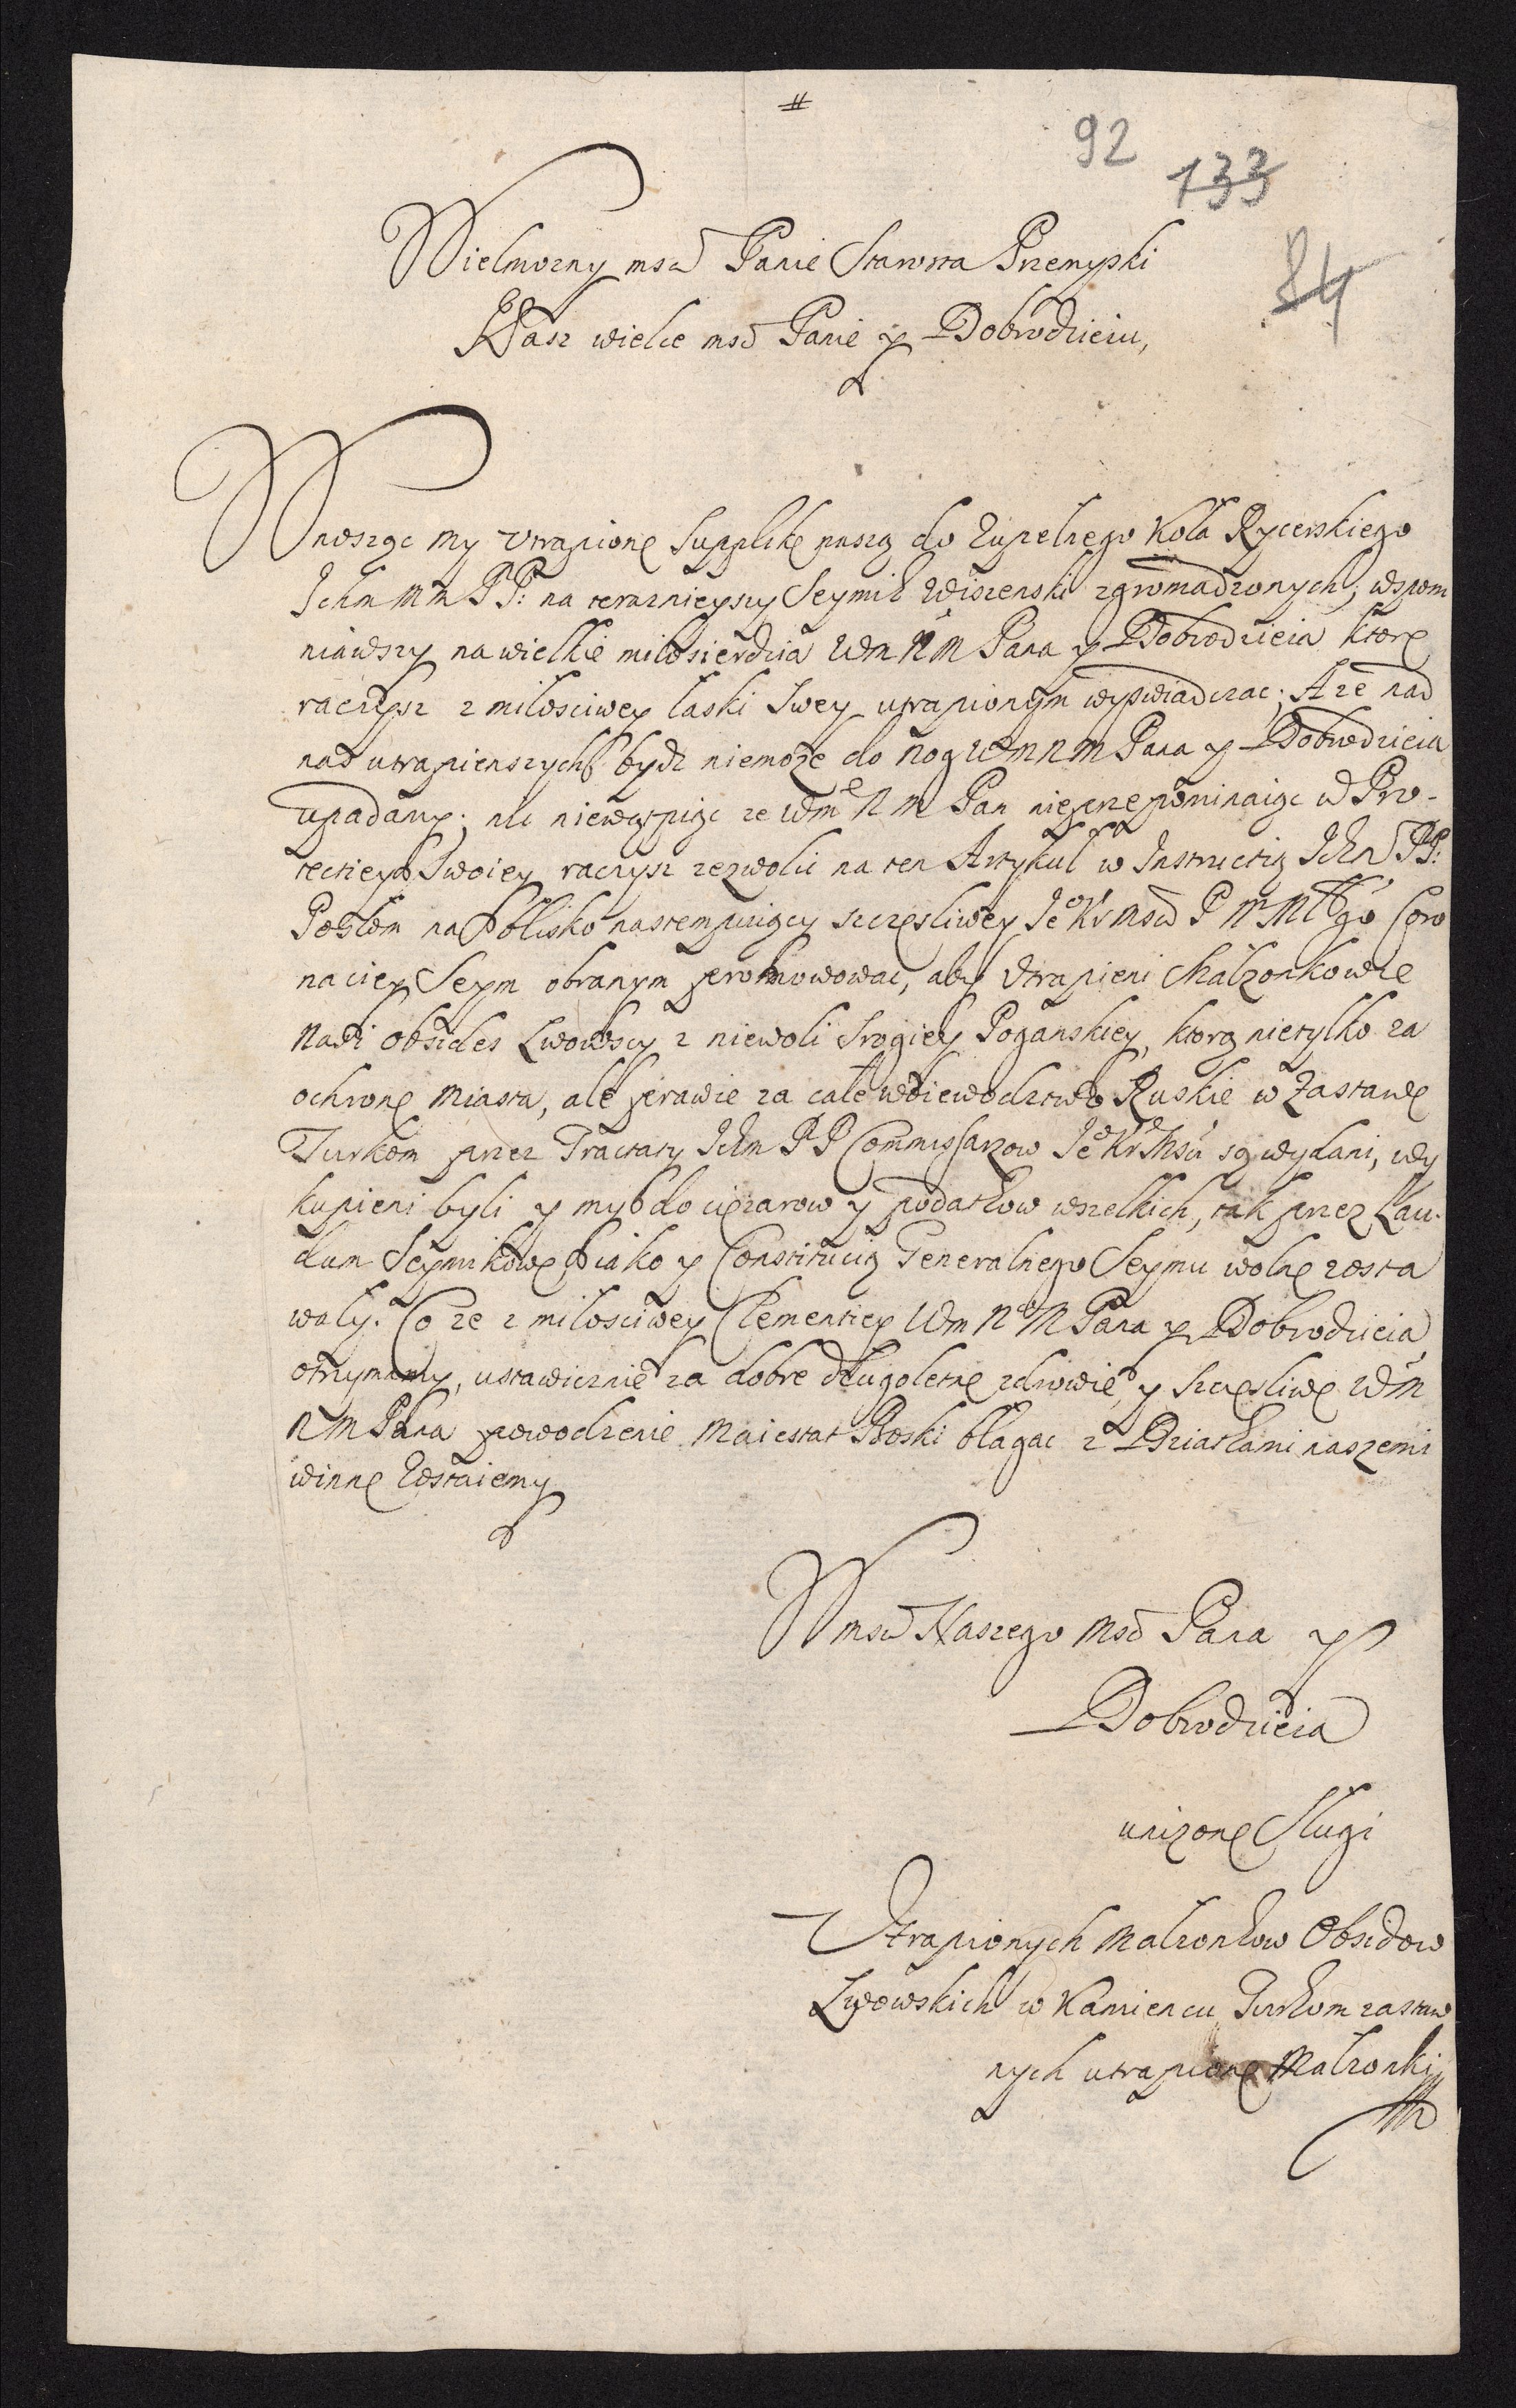 #
92
133
84
Wielmozny msci Panie Starosta Przemyski
Nasz wielce msci Panie y Dobrodzieiu,
Wnosząc my utrapione Supplikę naszą do Zupelnego Kola Rycerskiego
Ichm m m PP: na terazniejszy Seymik Wiszenski zgromadzonych, wspom
niawszy na wielkie milosierdzia Wm N M Pana y Dobrodzieia ktore
raczysz z milosciwey laski swey utrapionym wyswiadczac; A ze nad
nas utrapienszych bydz niemoze do nog Wm n m Pana y Dobrodzieia
upadamy; nic niewątpiąc ze Wm N M Pan nieprzepominaiąc w Pro-
tectiey Swoiey raczysz zezwolic na ten Artykul w Instructią Ichm PP:
Poslom na blisko nastempuiący szczesliwey Je Kr Msci P N Mlgo Coro
naciey Seym obranym promowowac, aby utrapieni Malzonkowie
Nasi Obsides Lwowscy z niewoli srogiey Poganskiey, ktorą nietylko za
ochronę Miasta, ale prawie za cale woiewodztwo Ruskie w Zastawę
Turkom przez Tractaty Ichm PP Commissarzow Je Kr Msci są wydani, wy
kupieni byli y my do ciezarow y podatkow wszelkich, tak przez Lau-
dum Seymikowe iako y Constitucią Generalnego Seymu wolne zosta
waly. Co ze z milosciwey Clementiey Wm N M Pana y Dobrodzieia
otrzymamy, ustawicznie za dobre dlugoletne zdrowie y szczesliwe Wm
N M Pana powodzenie Maiestat Boski blagac z Dziatkami naszemi
winne zostaiemy
Wmsci Naszego Msci Pana y
Dobrodzieia
unizone Slugi
Utrapionych Malzonkow Obsidow
Lwowskich w Kamiencu Turkom zastaw
nych utrapione Malzonki